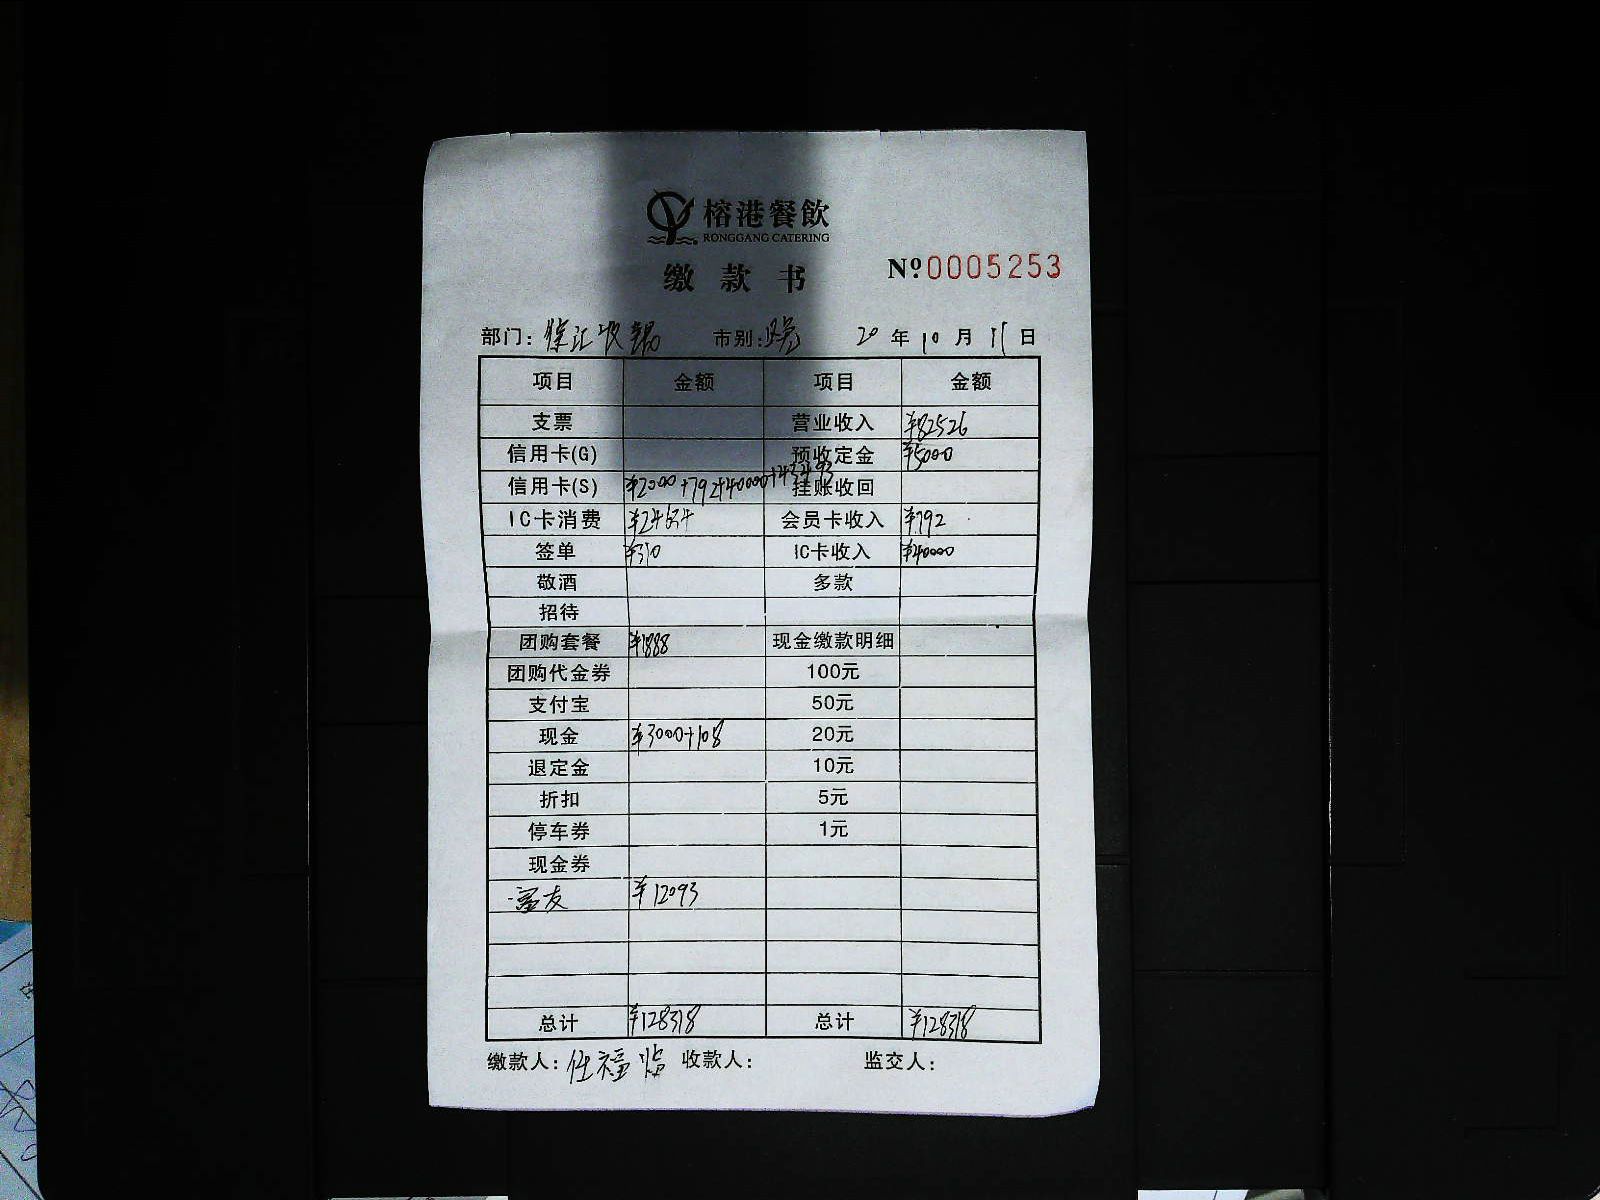 榕港餐飲
RONGGANG CATERING
缴款书 Nº0005253
部门: 徐汇收银 市别: 晚 20年10月11日
项目 金额 项目 金额
支票 营业收入 ¥82526
信用卡(G) 预收定金 ¥5000
信用卡(S) ¥2000+792+40000+43493 挂账收回
IC卡消费 ¥24634 会员卡收入 ¥792
签单 ¥310 IC卡收入 ¥40000
敬酒 多款
招待
团购套餐 ¥1888 现金缴款明细
团购代金券 100元
支付宝 50元
现金 ¥3000+108 20元
退定金 10元
折扣 5元
停车券 1元
现金券
友 ¥12093
总计 ¥128318 总计 ¥128318
缴款人: 任福 收款人: 监交人: